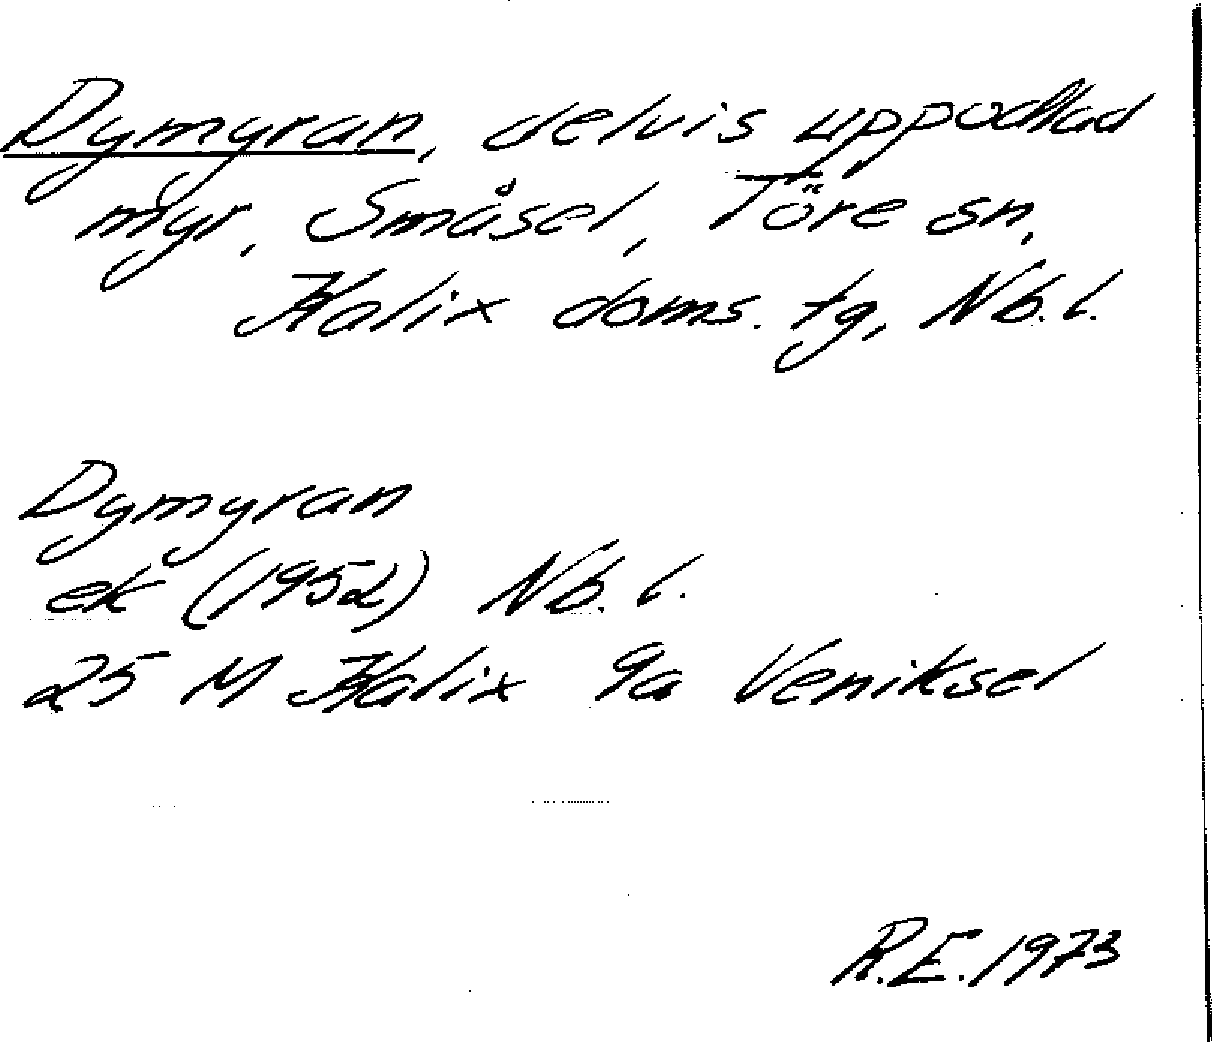 Dymyran, delvis uppodlad
myr, Småsel, Töre sn,
Kalix doms. tg, Nb. l.
Dymyran
ek (1952) Nb. l.
25 M Kalix 9a Veniksel
R.E. 1973